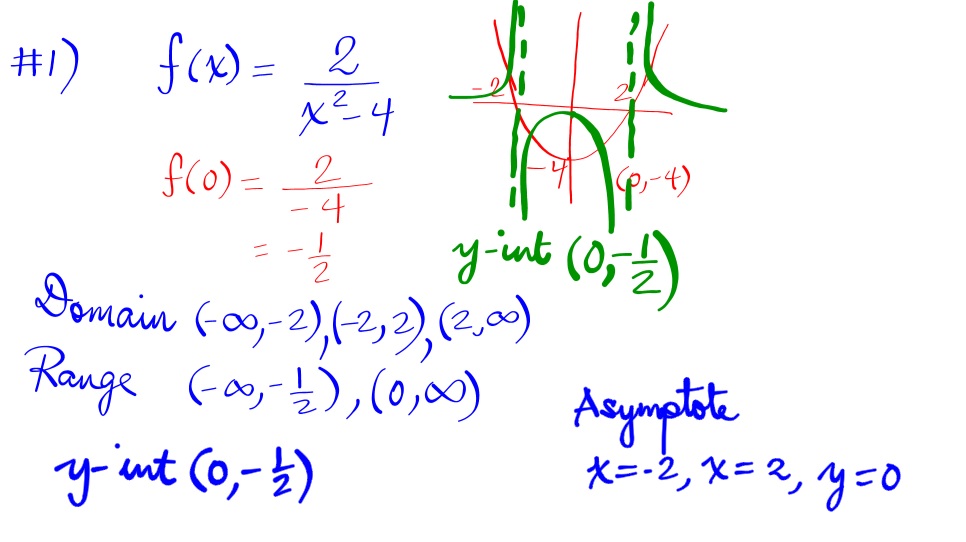 #1) f(x) = 2/(x² - 4)
f(0) = 2/-4
= -1/2
-2 2
-4 (0,-4)
y-int (0,-1/2)
Domain (-∞,-2),(-2,2),(2,∞)
Range (-∞,-1/2),(0,∞)
y-int (0,-1/2)
Asymptote
x=-2, x=2, y=0